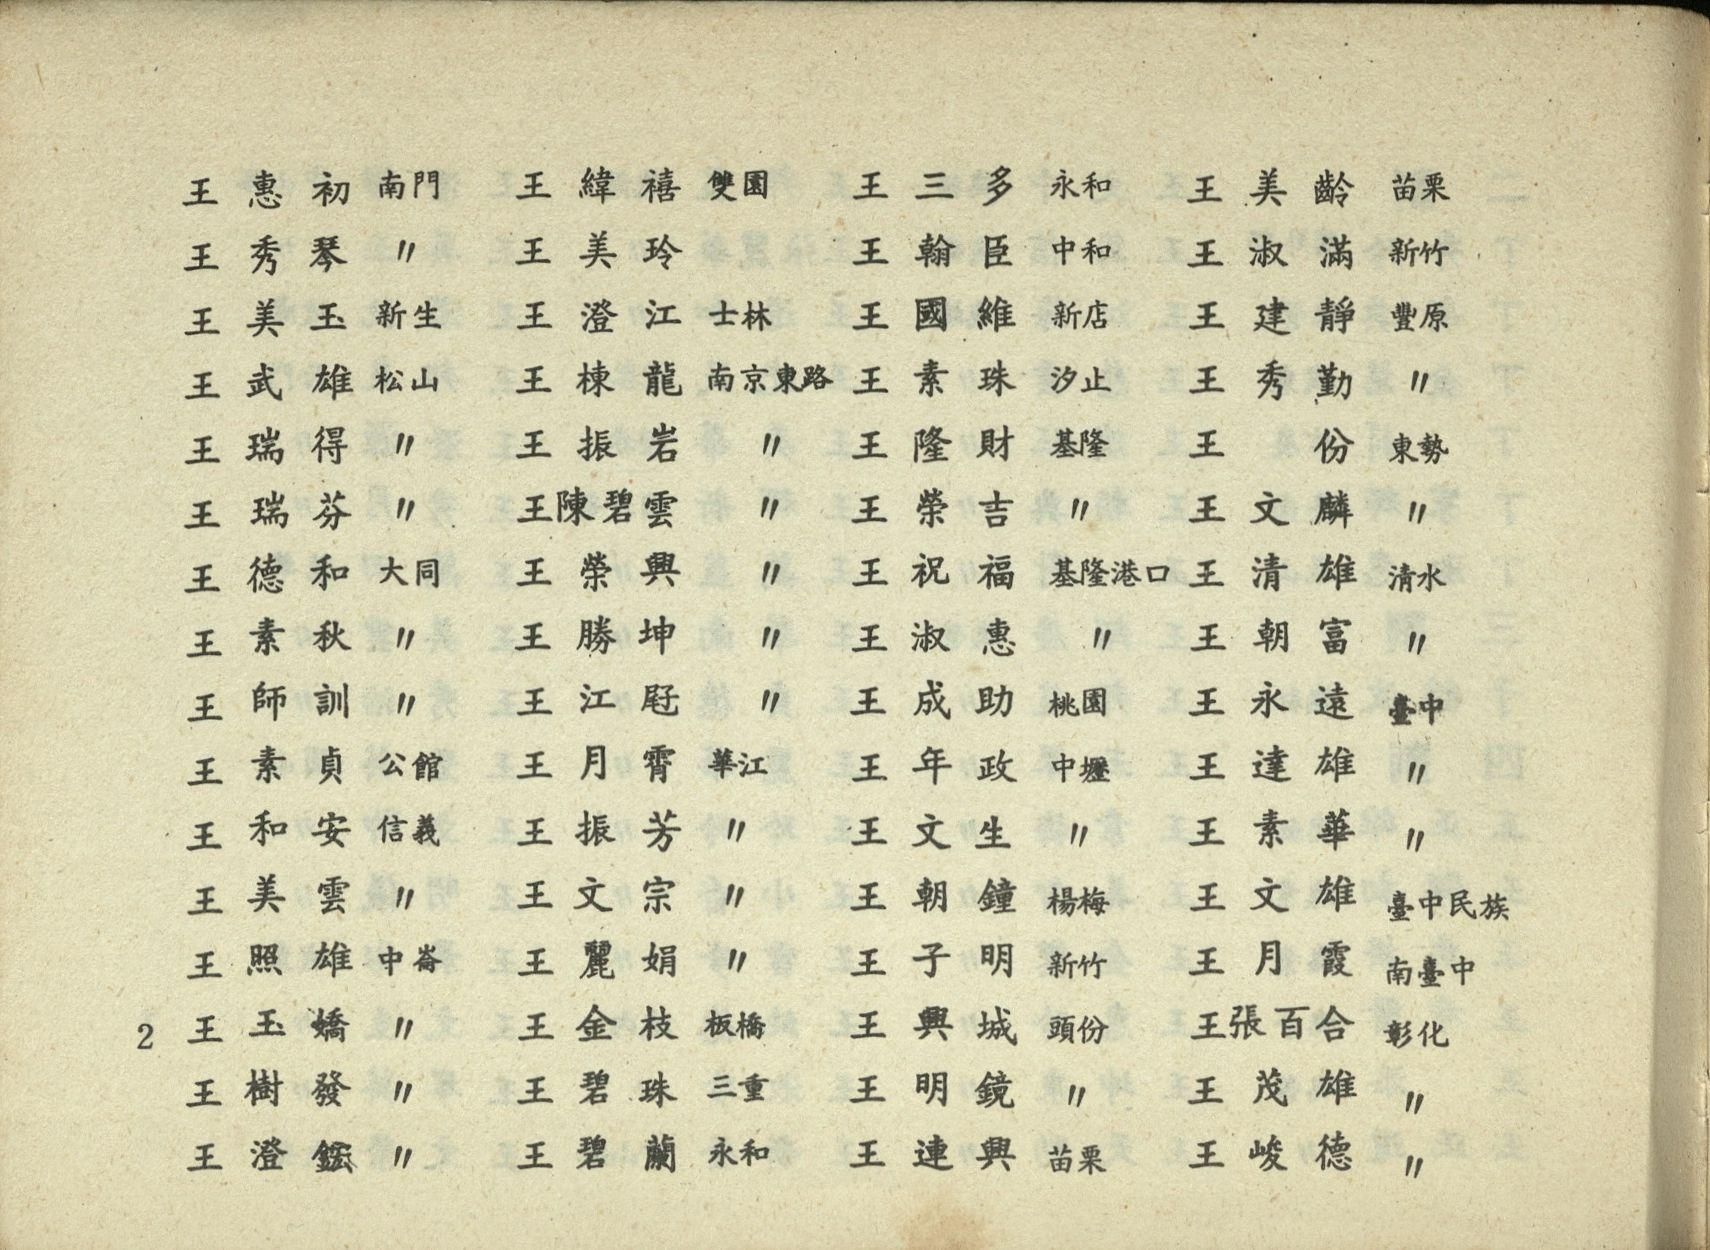 王惠初 南門 王緯禧 雙園 王三多 永和 王美齡 苗栗
王秀琴 〃 王美玲 王翰臣 中和 王淑滿 新竹
王美玉 新生 王澄江 士林 王國維 新店 王建靜 豐原
王武雄 松山 王棟龍 南京東路 王素珠 汐止 王秀勤 〃
王瑞得 〃 王振岩 〃 王隆財 基隆 王份 東勢
王瑞芬 〃 王陳碧雲 〃 王榮吉 〃 王文麟 〃
王德和 大同 王榮興 〃 王祝福 基隆港口 王清雄 清水
王素秋 〃 王勝坤 〃 王淑惠 〃 王朝富 〃
王師訓 〃 王江 〃 王成助 桃園 王永遠 臺中
王素貞 公館 王月霄 華江 王年政 中壢 王達雄 〃
王和安 信義 王振芳 〃 王文生 〃 王素華 〃
王美雲 〃 王文宗 〃 王朝鐘 楊梅 王文雄 臺中民族
王照雄 中崙 王麗娟 〃 王子明 新竹 王月霞 南臺中
王玉嬌 〃 王金枝 板橋 王興城 頭份 王張百合 彰化
王樹發 〃 王碧珠 三重 王明鏡 〃 王茂雄 〃
王澄 〃 王碧蘭 永和 王連興 苗栗 王峻德 〃
2